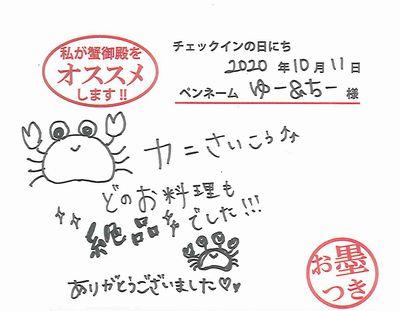 私が蟹御殿を
オススメ
します!!
チェックインの日にち
2020 年 10 月 11 日
ペンネーム ゆー&ちー 様
カニさいこう⤴⤴
どのお料理も
絶品でした!!!
ありがとうございました♡♡
お墨
つき